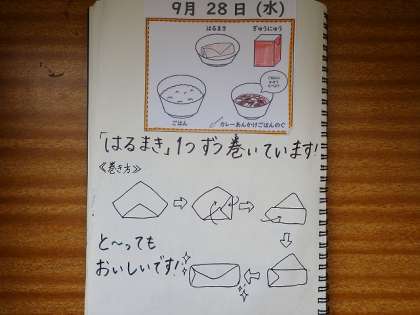 9月 28日(水)
はるまき
ぎゅうにゅう
ごはん
カレーあんかけごはんのぐ
「はるまき」1つずつ巻いています!
≪巻き方≫
と〜っても
おいしいです!